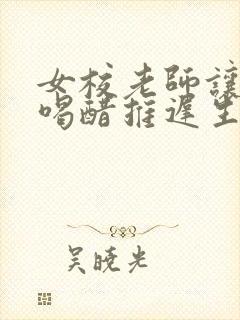 女校老師讓
喝醋推遲生
吳曉光